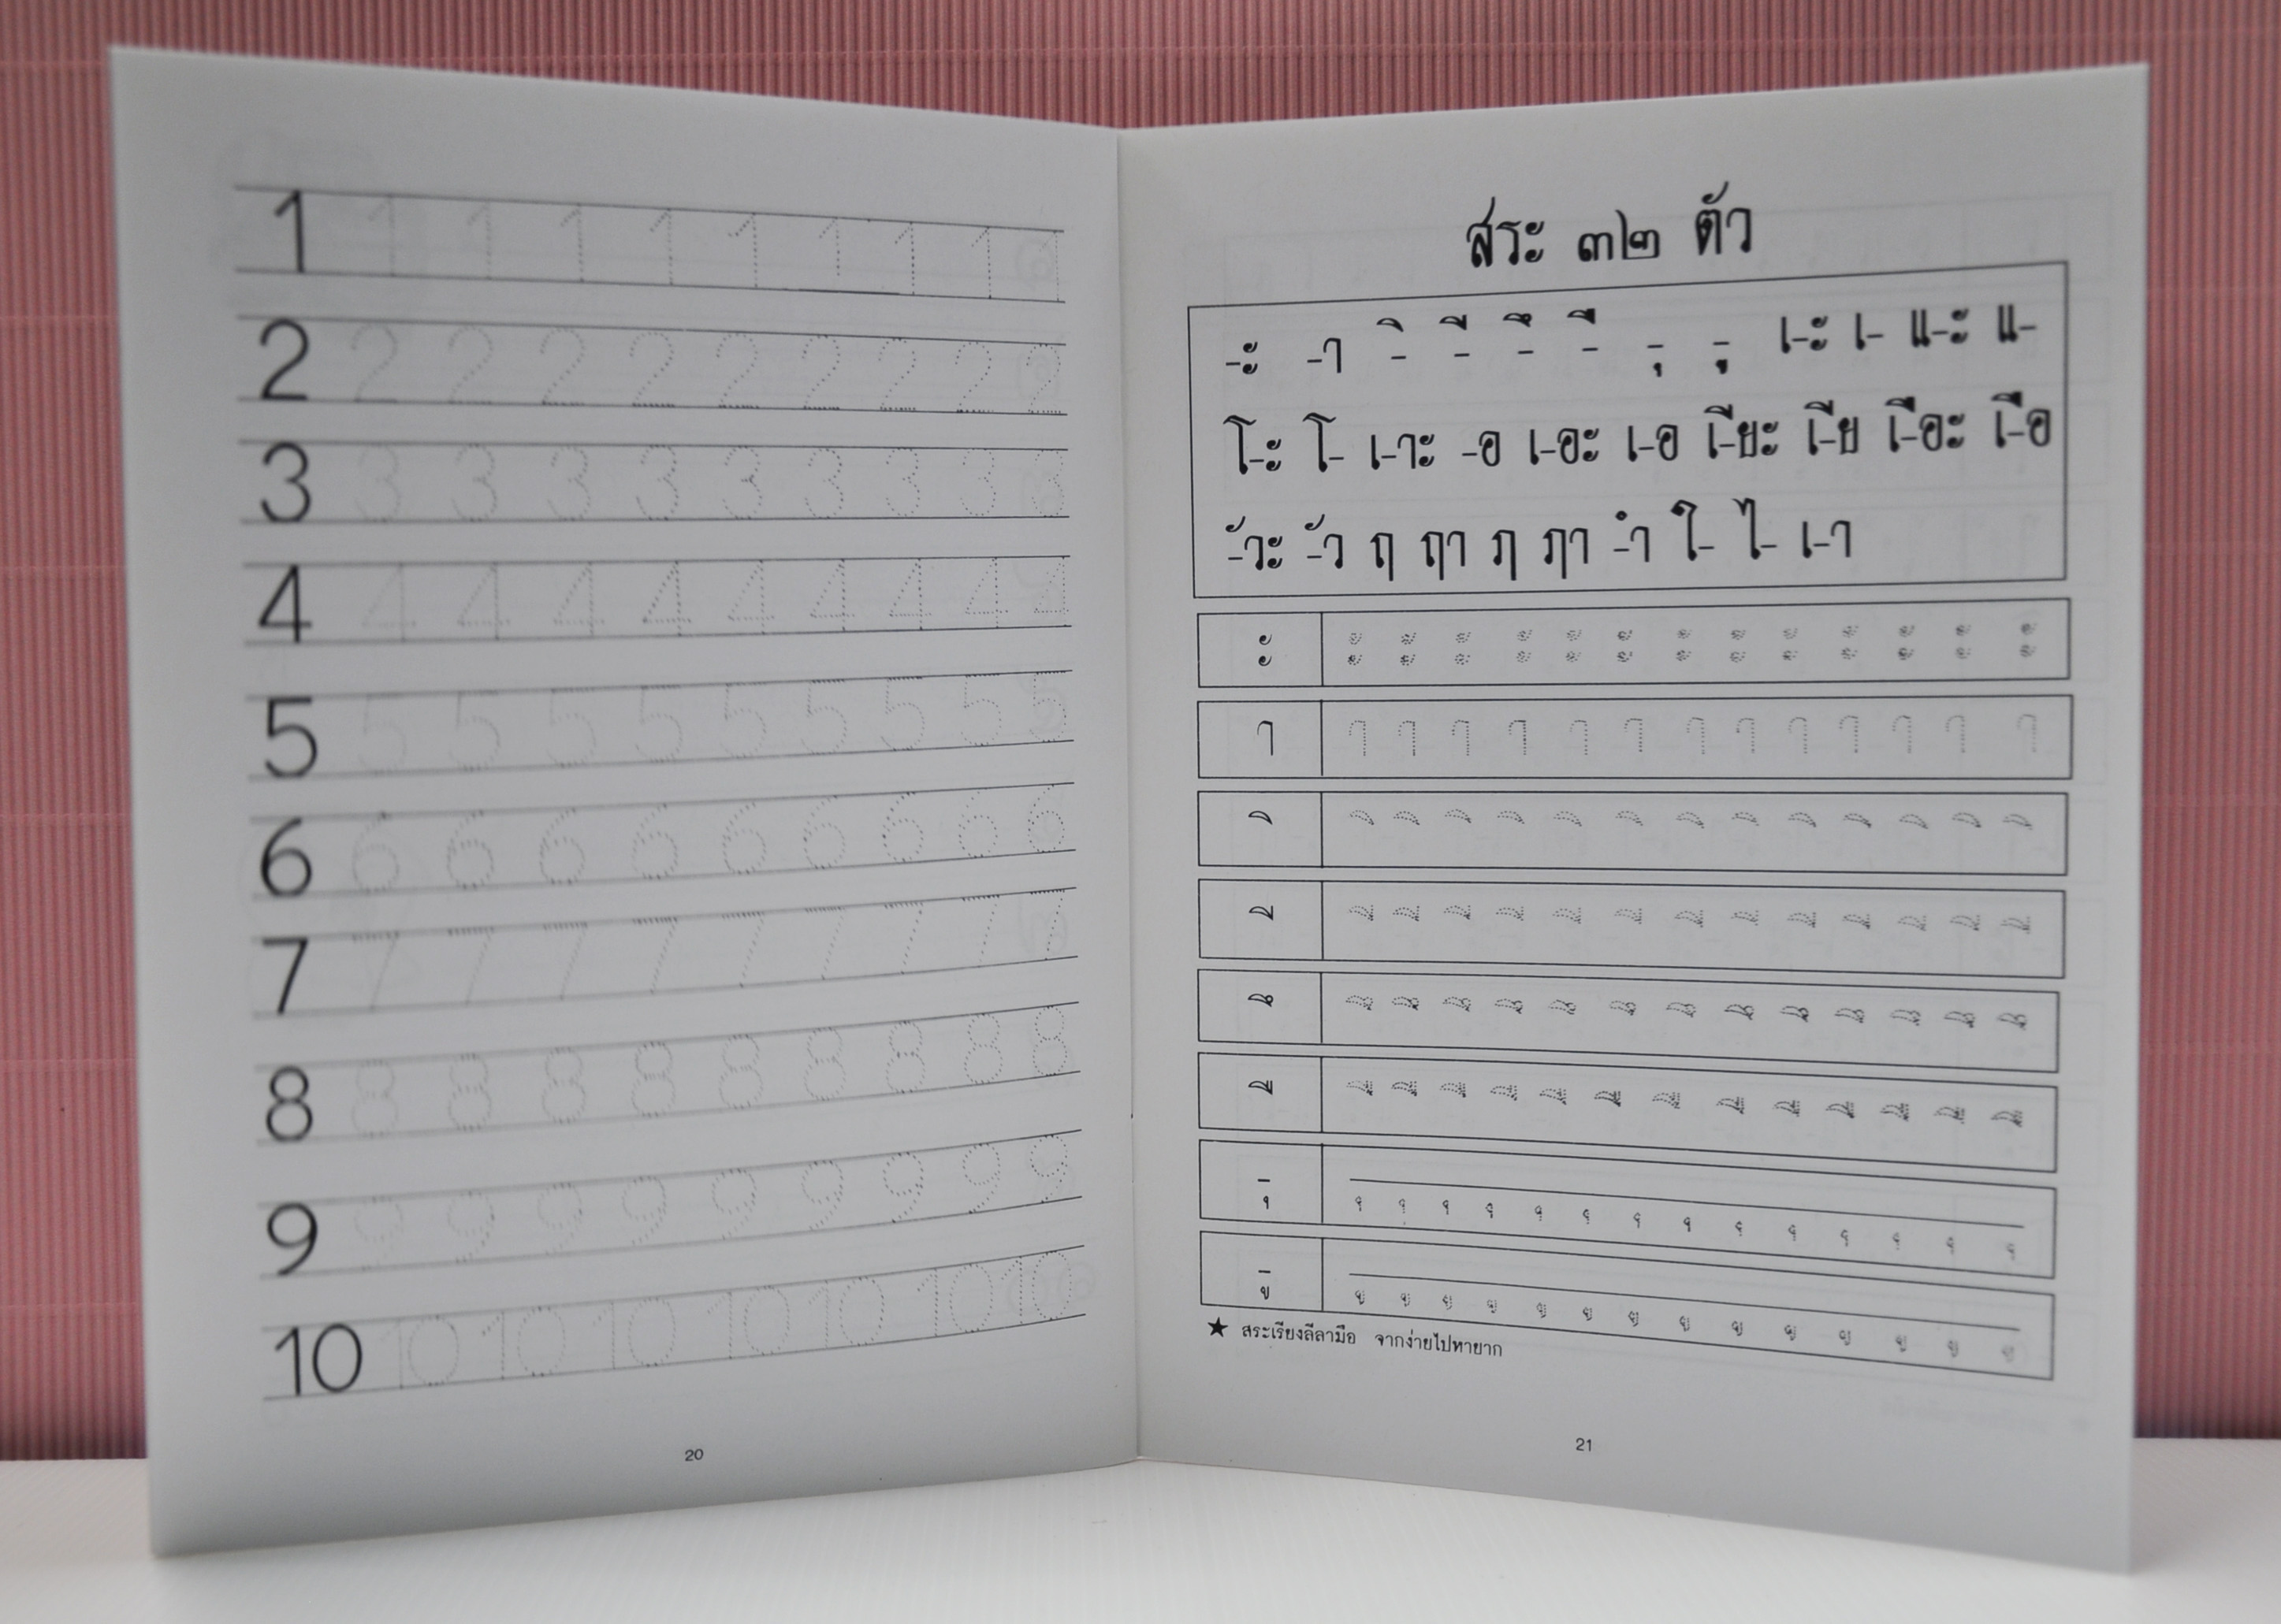 1 1 1 1 1 1 1 1 1 1
2 2 2 2 2 2 2 2 2 2
3 3 3 3 3 3 3 3 3 3
4 4 4 4 4 4 4 4 4 4
5 5 5 5 5 5 5 5 5 5
6 6 6 6 6 6 6 6 6 6
7 7 7 7 7 7 7 7 7 7
8 8 8 8 8 8 8 8 8 8
9 9 9 9 9 9 9 9 9 9
10 10 10 10 10 10 10 10 10
20
สระ ๓๒ ตัว
-ะ -า -ิ -ี -ึ -ื -ุ -ู เ-ะ เ- แ-ะ แ-
โ-ะ โ- เ-าะ -อ เ-อะ เ-อ เ-ียะ เ-ีย เ-ือะ เ-ือ
-ัวะ -ัว ฤ ฤา ฦ ฦา -ำ ใ- ไ- เ-า
ะ ะ ะ ะ ะ ะ ะ ะ ะ ะ ะ ะ ะ ะ
า า า า า า า า า า า า า า
ิ ิ ิ ิ ิ ิ ิ ิ ิ ิ ิ ิ ิ ิ
ี ี ี ี ี ี ี ี ี ี ี ี ี ี
ึ ึ ึ ึ ึ ึ ึ ึ ึ ึ ึ ึ ึ ึ
ื ื ื ื ื ื ื ื ื ื ื ื ื ื
-ุ ุ ุ ุ ุ ุ ุ ุ ุ ุ ุ ุ ุ ุ ุ
-ู ู ู ู ู ู ู ู ู ู ู ู ู ู ู
★ สระเรียงลีลามือ จากง่ายไปหายาก
21